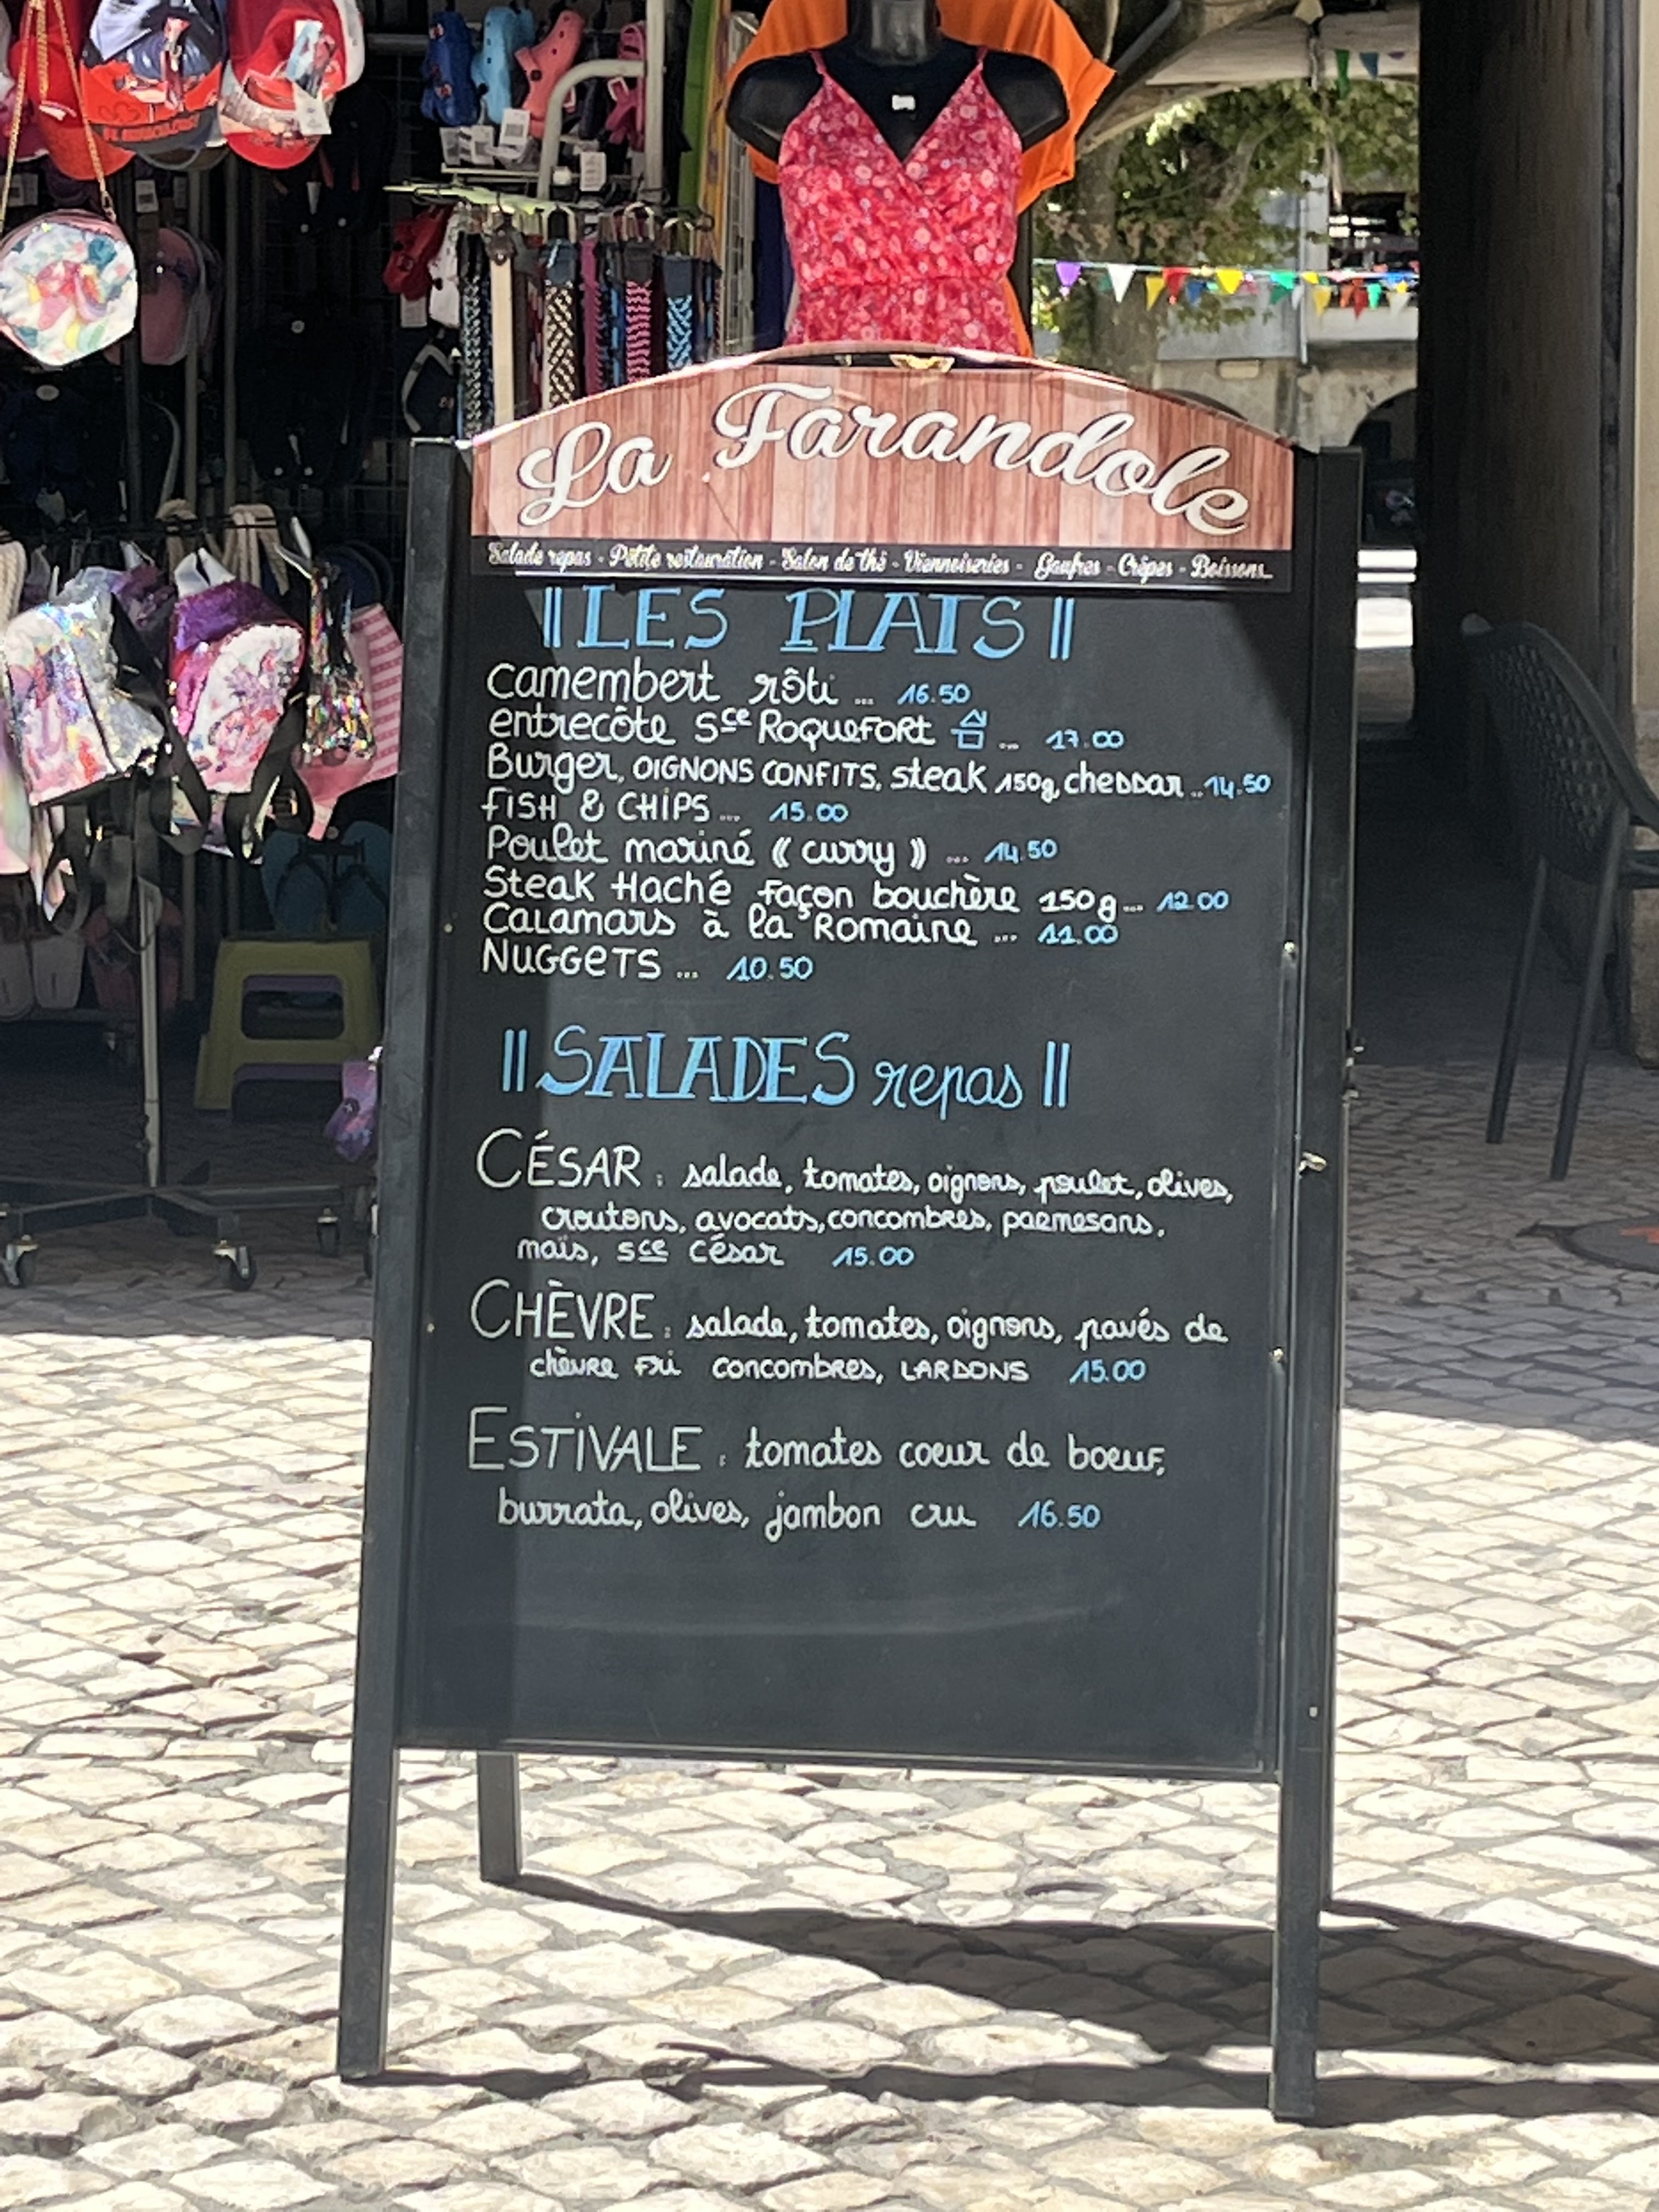 La Farandole
Salade repas - Petite restauration - Salon de thé - Viennoiseries - Gaufres - Crêpes - Boissons
LES PLATS
Camembert rôti ... 16.50
entrecôte Sce Roquefort ... 17.00
Burger, OIGNONS CONFITS, steak 150g, cheddar ... 14.50
FISH & CHIPS ... 15.00
Poulet mariné (( curry )) ... 14.50
Steak Haché façon bouchère 150g ... 12.00
Calamars à la Romaine ... 11.00
NUGGETS ... 10.50
SALADES repas
CÉSAR : salade, tomates, oignons, poulet, olives,
croutons, avocats, concombres, parmesans,
maïs, sce César 15.00
CHÈVRE : salade, tomates, oignons, pavés de
chèvre Fri concombres, LARDONS 15.00
ESTIVALE : tomates coeur de boeuf,
burrata, olives, jambon cru 16.50